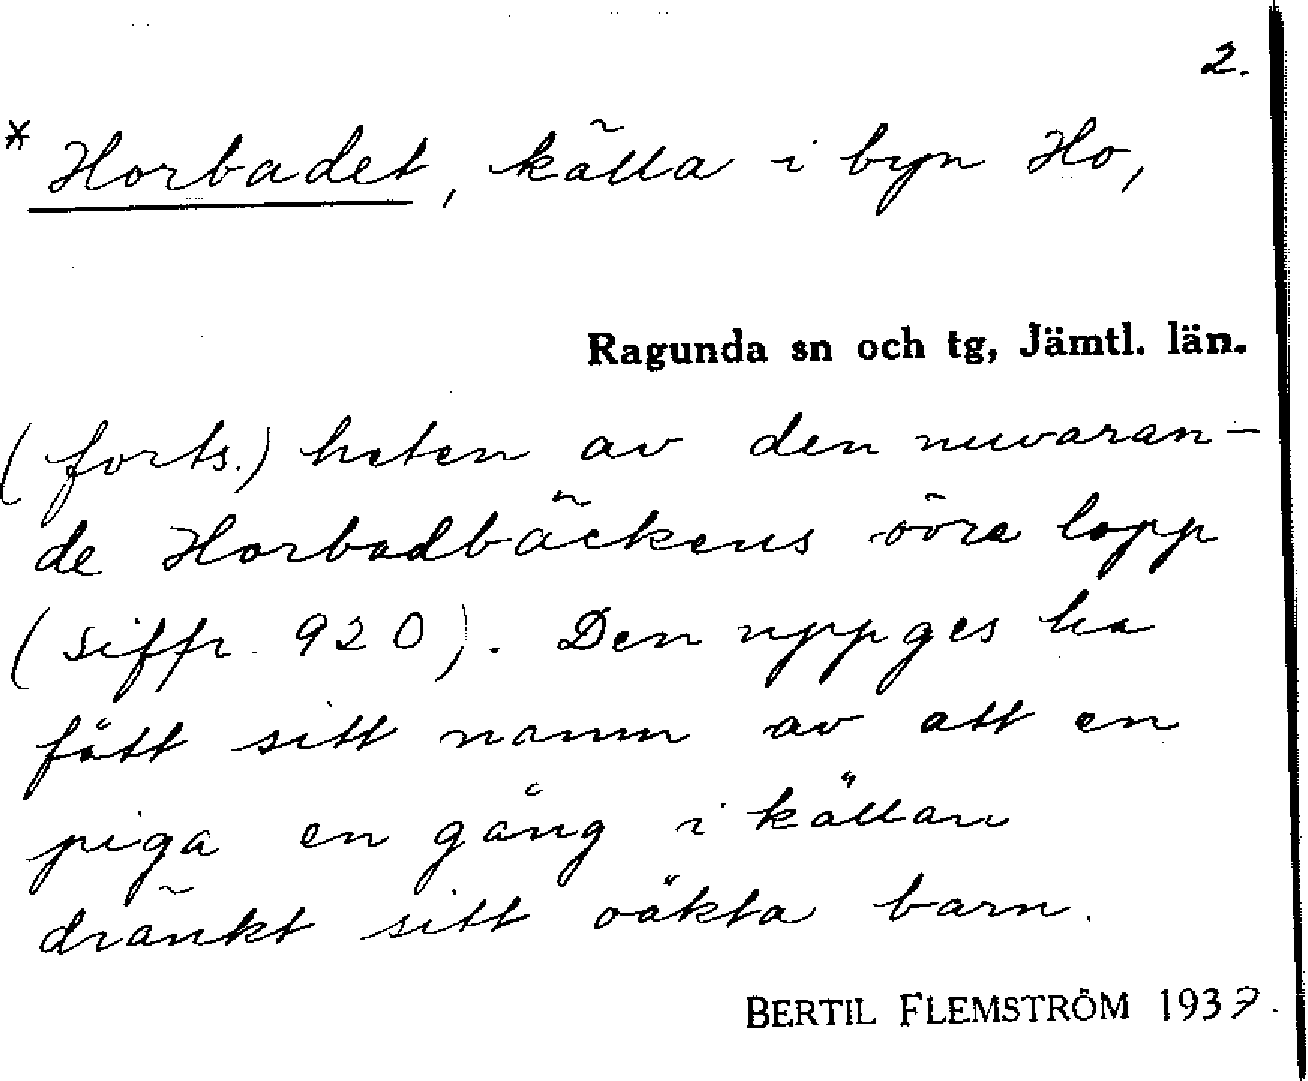 2.
* Horbadet, källa i byn Ho,
Ragunda sn och tg, Jämtl. län.
(forts.) heten av den nuvaran-
de Horbadbäckens övre lopp
(siffr. 920). Den uppges ha
fått sitt namn av att en
piga en gång i källan
dränkt sitt oäkta barn.
BERTIL FLEMSTRÖM 1937.